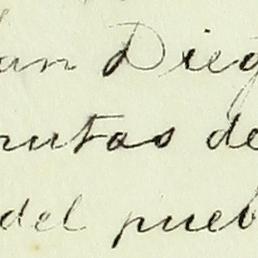 an Dieg
rutas de
del pueb